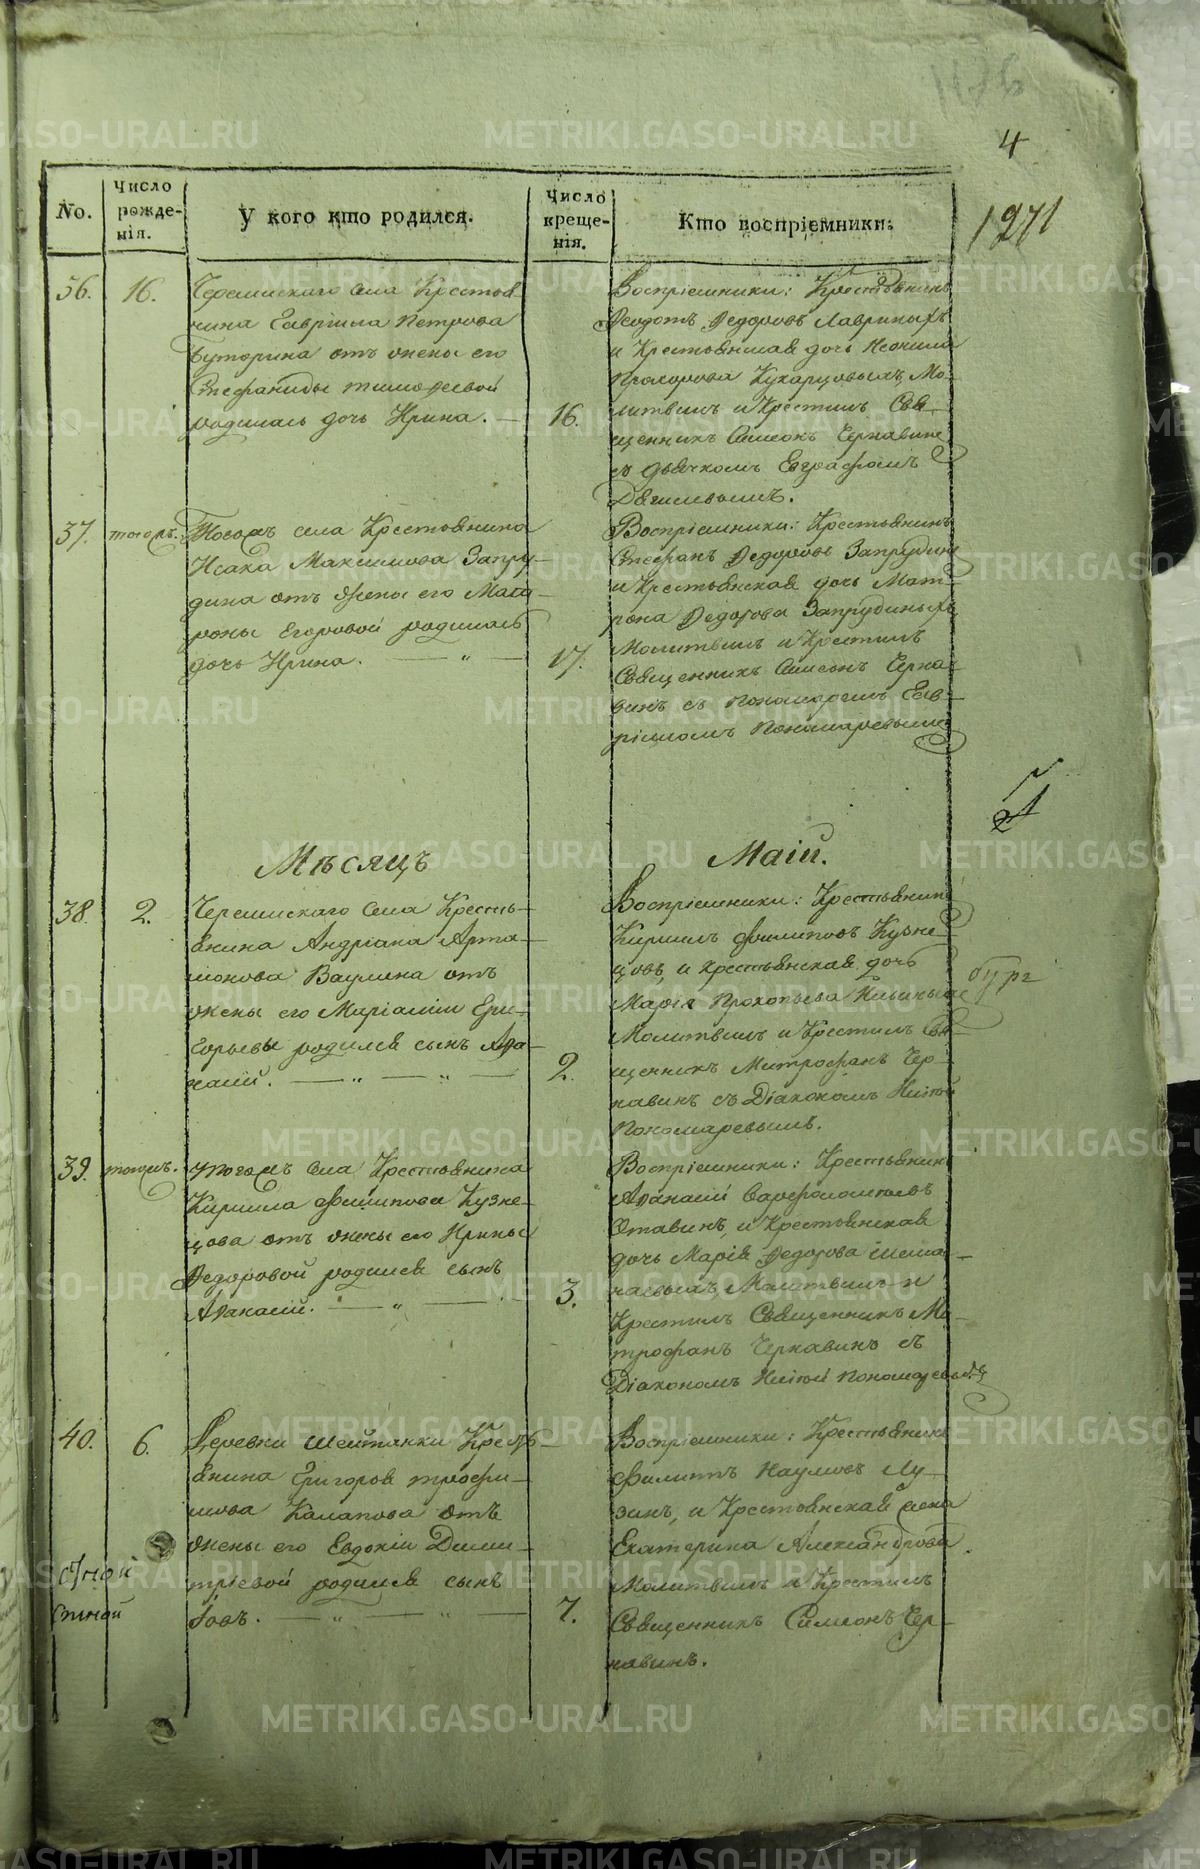 4
1271
No.
Число рожде-нія.
У кого кто родился.
Число креще-нія.
Кто воспріемники:
36.
16.
Черемискаго села Крестья
нина Гавріила Петрова
Буторина отъ жены его
Стефаниды Тимоѳеевой
родилась дочь Ирина. —
16.
Воспріемники: Крестьянинъ
Ѳеодотъ Ѳедоровъ Лавриныхъ
и Крестьянская дочь Неонила
Прохорова Кухарцовыхъ, Мо-
литвилъ и Крестилъ Свя-
щенникъ Симеонъ Чернавинъ
съ дьячкомъ Евграфомъ
37.
тогожъ.
Тогожъ села Крестьянина
Исака Максимова Запру-
дина отъ жены его Мате-
роны Егоровой родилась
дочь Ирина. — „ —
17.
Воспріемники: Крестьянинъ
Стефанъ Ѳедоровъ Запрудинъ
и Крестьянская дочь Мат-
рона Ѳедорова Запрудиныхъ
Молитвилъ и Крестилъ
Священникъ Симеонъ Черна-
винъ съ пономаремъ Гав-
ріиломъ Пономаревымъ
Мѣсяцъ
Маій.
38.
2.
Черемискаго села Кресть-
янина Андріана Арта-
монова Ваулина отъ
жены его Маріаміи Гри-
горьевы родился сынъ Аѳа-
насій. — „ — „ —
2.
Воспріемники: Крестьянинъ
Кирилъ Филиповъ Кузне-
цовъ, и крестьянская дочь
Марія Прокопьева Ильиныхъ
Молитвилъ и Крестилъ Свя-
щенникъ Митрофанъ Чер-
навинъ съ Діакономъ Иліей
Пономаревымъ.
39.
тогожъ.
Тогожъ села Крестьянина
Кирила Филипова Кузне-
цова отъ жены его Ирины
Ѳедоровой родился сынъ
Аѳанасій. — „ —
3.
Воспріемники: Крестьянинъ
Аѳанасій Варфоломеевъ
Отавинъ, и Крестьянская
дочь Марія Ѳедорова
Молитвилъ и
Крестилъ Священникъ Ми-
трофанъ Чернавинъ съ
Діакономъ Иліей Пономаревымъ
40.
6.
Деревни Шейтанки Кресть-
янина Григорья Трофи-
мова Калапова отъ
жены его Евдокіи Дими-
тріевой родился сынъ
Іовъ. — „ — „ —
7.
Воспріемники: Крестьянинъ
Филиппъ Наумовъ Лу-
зинъ, и Крестьянская жена
Екатерина Александрова.
Молитвилъ и Крестилъ
Священникъ Симеонъ Чер-
навинъ.
METRIKI.GASO-URAL.RU